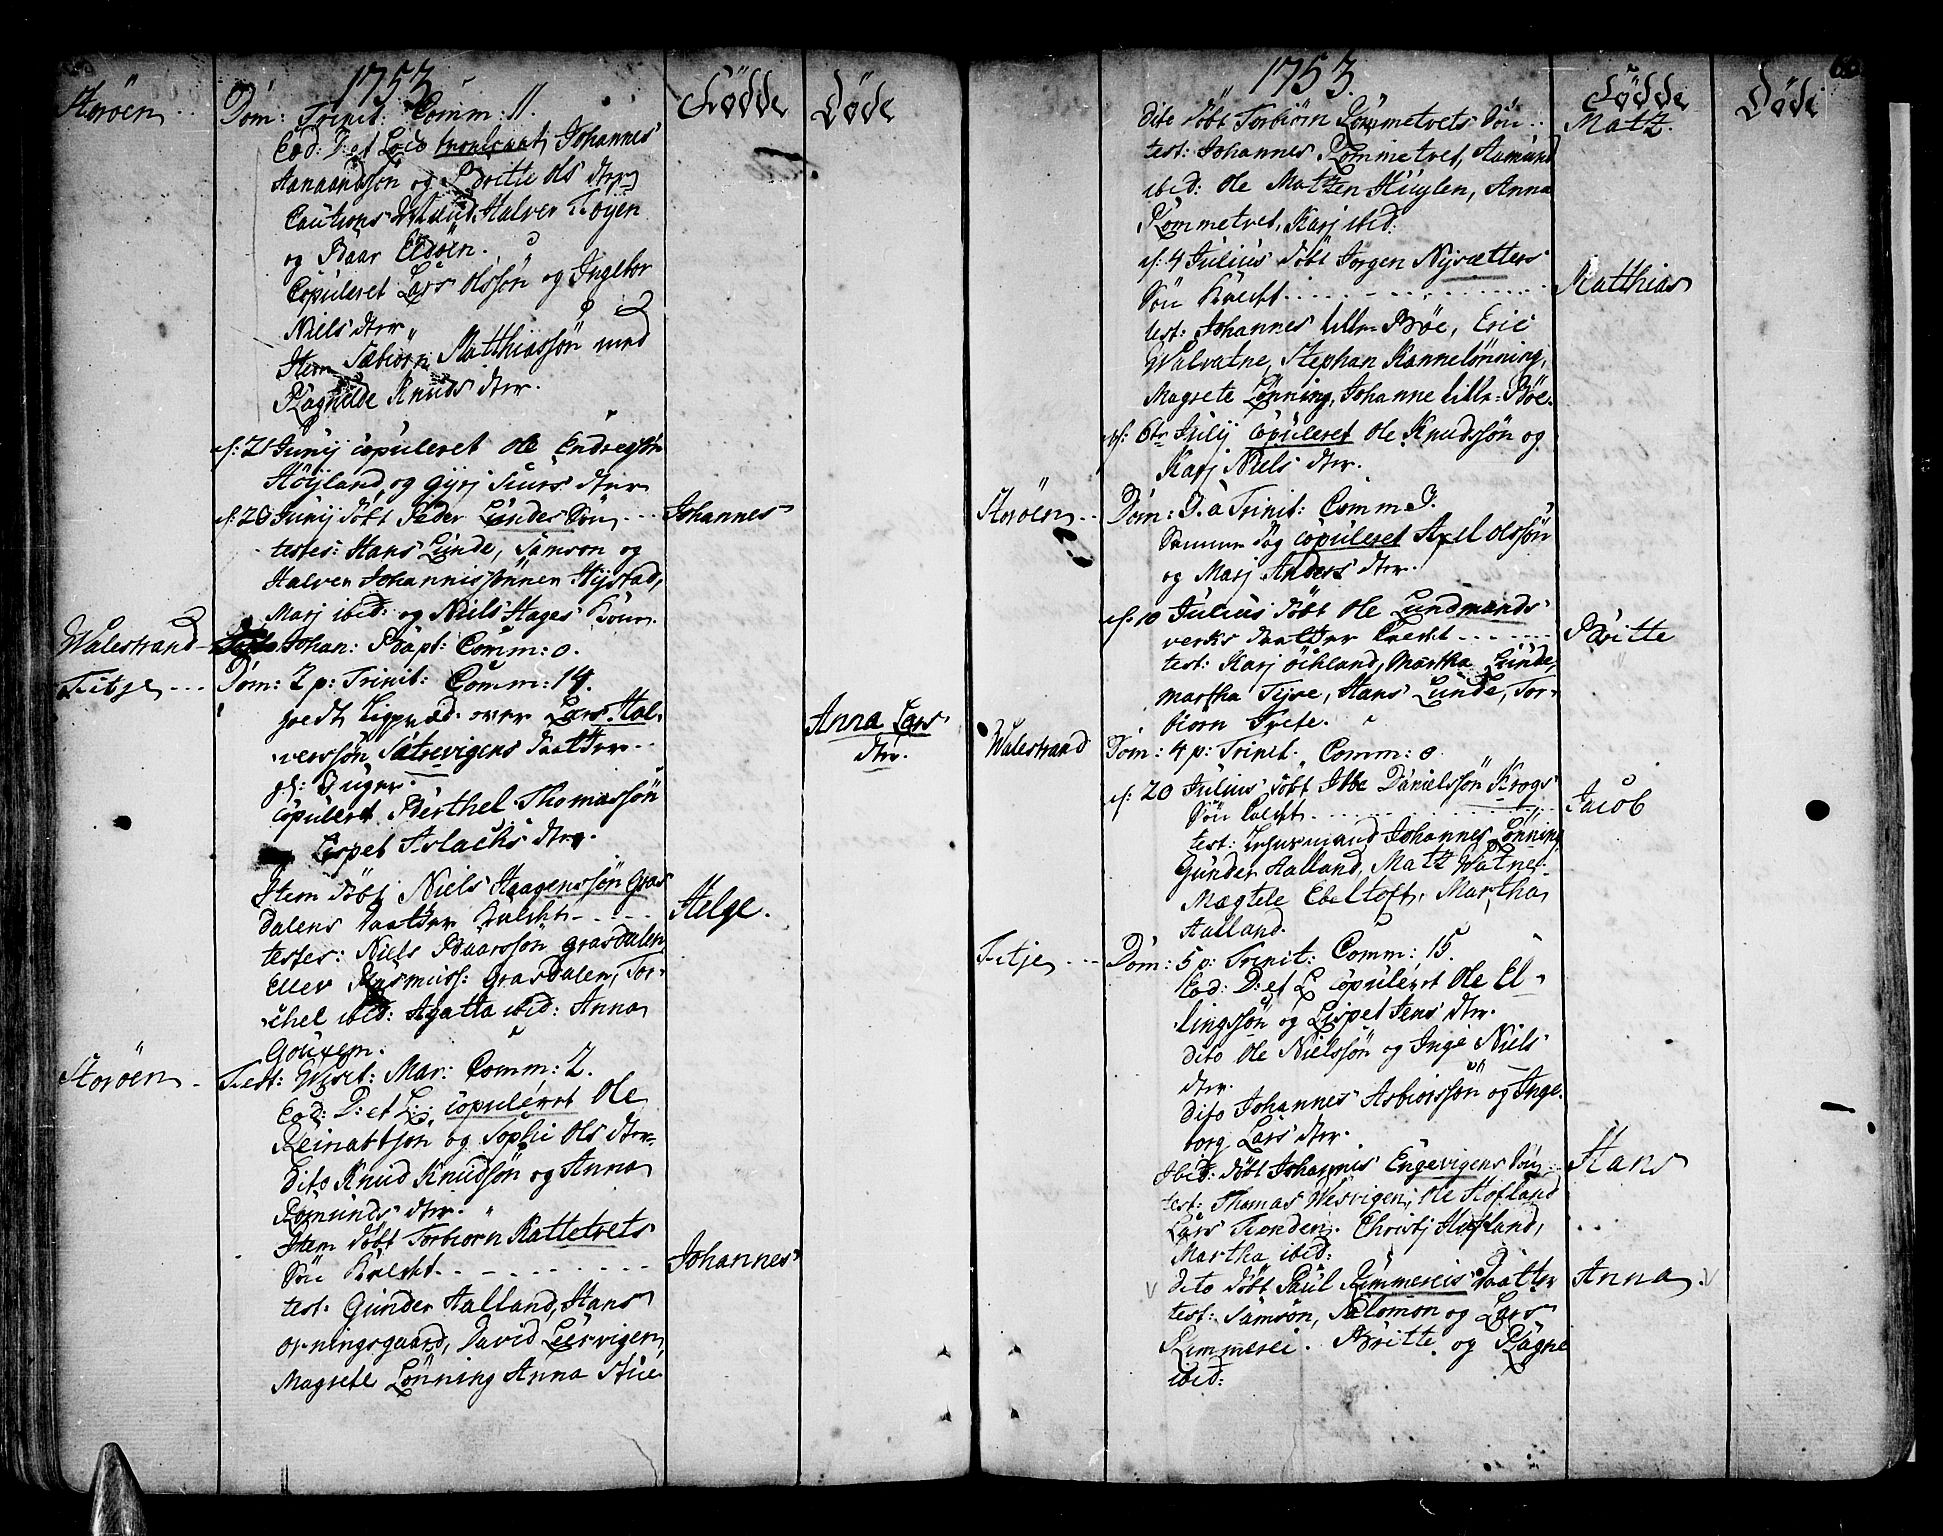 1753.
Fødde
Døde
Storöen
Dom: Trinit: Comm: 11.
Eod: D: et Loco trolovat Johannes
Aanaandsön og Britte Ols dtter
Cautions Halver Töyen
og Baar Eldöen.
Copuleret Lars Olssön og Ingebor
Niels dtter
Item Sæbiörn Matthiassön med
Ragnilde Knuds dtter.
d: 21 Junij copuleret Ole Endresön
Höyland, og Gyrj Siurs dtter
Junij döbt Peder Lundes Sön
Johannes
testes: Hans Lunde, Samson og
Halver Johannissönner Hystad,
Marj ibid: og Niels Hages Kone.
Walestrand
Johan: Bapt: Comm: 0.
Fitje
Dom: 2 p: Trinit: Comm: 14.
holdt Ligpræd. over Lars Hal-
verssön Sætrevigens Daatter
Anna Lars
dtr.
gl: Uger.
copuleret Berthel Thomassön
Lispet Aslachs dtter.
Item döbt Niels Haagenssön Gras
dalens Daatter kaldet
Helge.
testes: Niels Baarssön Grasdalen,
Eller Rasmuss: Grasdalen, Tor-
chel ibid: Agatta ibid: Anna
Storöen
Fest: Wisit: Mar: Comm: 2.
Eod: D: et L: copuleret Ole
Reinattsön og Sophi Ols dtter
Dito Knud Knudsön og Anna
Romunds dtter.
Item döbt Torbiorn Rattetvets
Sön kaldet
Johannes
test: Gunder Aalland, Hans
Orningsgaard, David Leervigen
Magrete Lönning Anna Stue
1753.
Fødde
Døde
dito döbt Torbiörn Rommetvets Sön
Matz.
test: Johannes Rommetvet, Aamund
ibid: Ole Matzen Huglen, Anna
Rommetvet, Karj ibid:
d: 4 Julius döbt Jorgen Nysætters
Sön kaldet
Matthias
test: Johannes lille Böe, Eric
Walvatne, Stephan Kannelönning,
Magrete Lönning, Johanne lille Böe.
d: 6te Julij copuleret Ole Knudssön og
Karj Niels dtter.
Storöen
Dom: 3. a Trinit: Comm 3.
Samme Dag copuleret Axel Olssön
og Marj Anders dtter.
d: 10 Julius döbt Ole Lundmands
verks Daatter kaldet
Britte
test: Karj Öchland, Martha Lunde,
Martha Tyse, Hans Lunde, Tor-
biorn Tvete.
Walestrand
Dom: 4 p: Trinit. Comm: 0
d: 20 Julius döbt Ibbe Danielssön Krogs
Sön kaldet
Jacob
test: Johannes Lönning
Gunder Aalland, Matz Watne
Mægtele Ebeltoft, Martha
Aalland.
Fitje
Dom: 5 p: Trinit: Comm: 15.
Eod: D: et L copuleret Ole El-
lingssön og Lispet Jens dtter.
dito Ole Nielssön og Inge Niels
dtter.
dito Johannes Asbiorssön og Inge-
borg Lars dtter.
Ibid: döbt Johannis Engevigens Sön
Hans
test: Thomas Wesvigen, Ole Hofland
Lars Tranden. Christj Hofland,
Martha ibid:
dito döbt Paul Rimmereis Daatter
Anna.
test: Samson, Salomon og Lars
Rimmerei. Britte og Ragne
ibid: